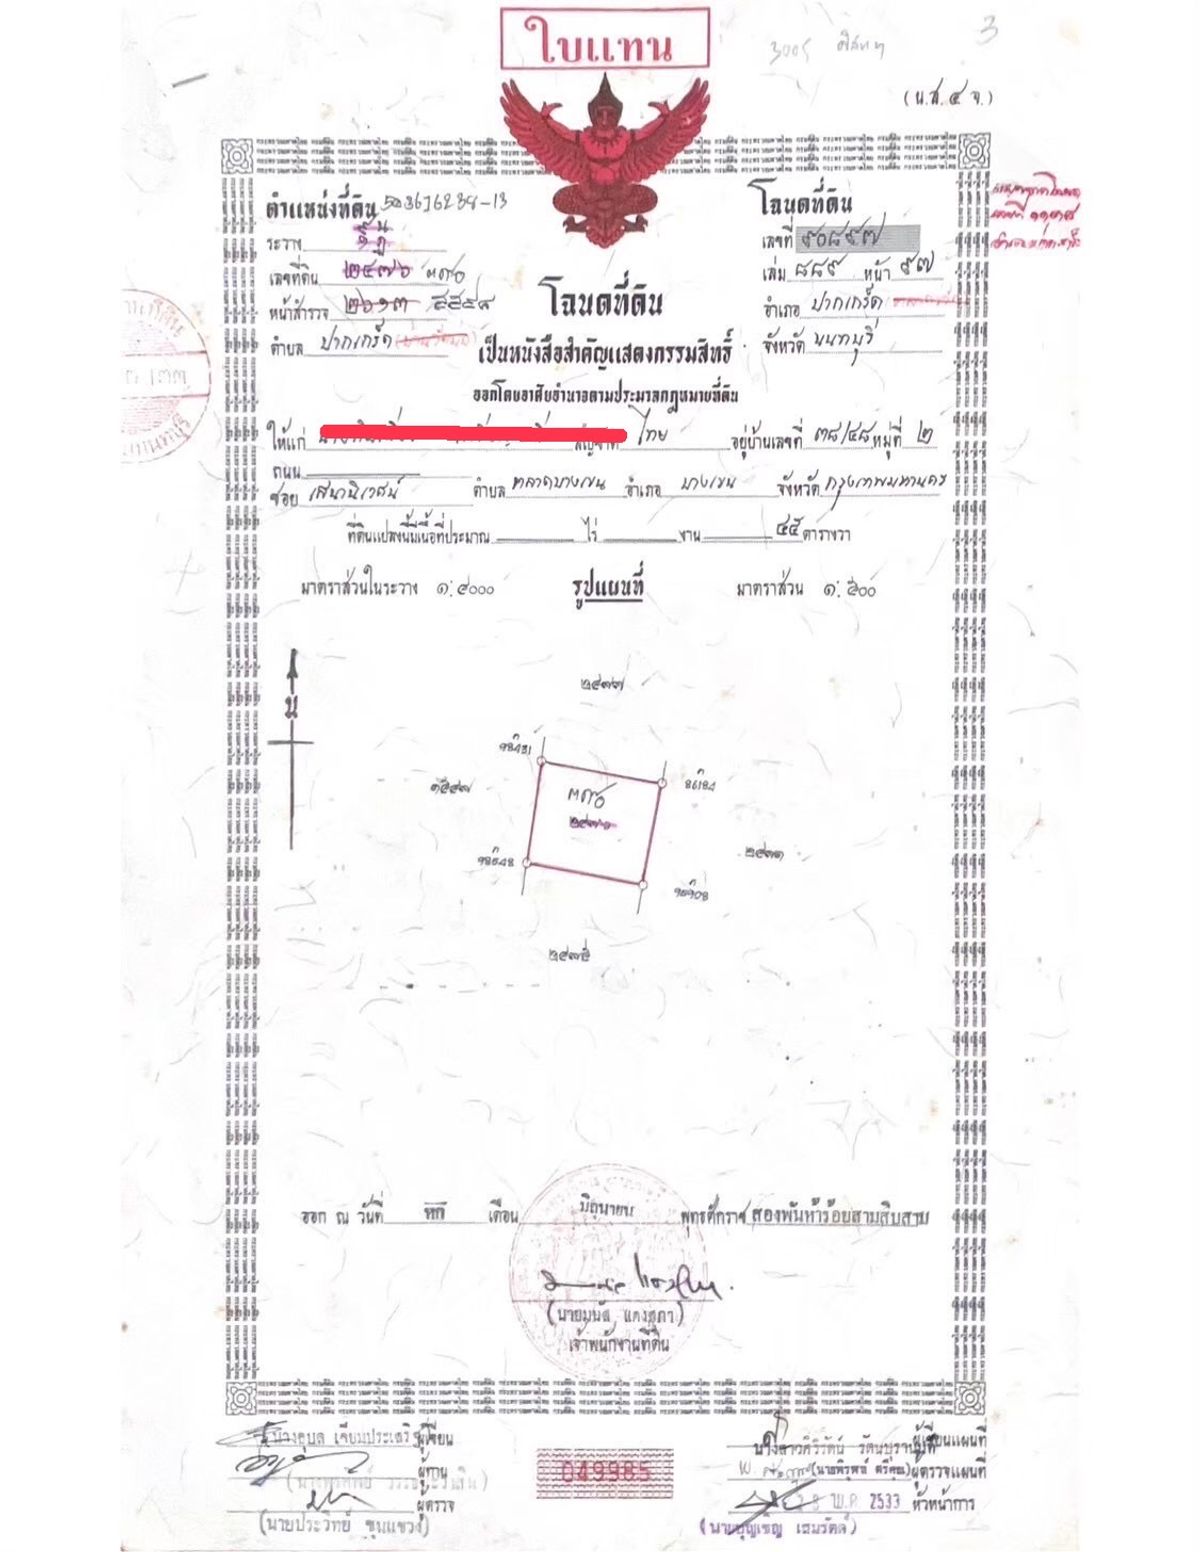 ใบแทน
3
(น.ส.๔ จ.)
ตำแหน่งที่ดิน
โฉนดที่ดิน
ระวาง
เลขที่ ๙๐๘๙๗
เลขที่ดิน ๒๔๗๖ ๓๙๐
เล่ม ๘๘๙ หน้า ๙๗
หน้าสำรวจ ๒๖๑๓ ๕๕๕๔
อำเภอ ปากเกร็ด
ตำบล ปากเกร็ด
จังหวัด นนทบุรี
โฉนดที่ดิน
เป็นหนังสือสำคัญแสดงกรรมสิทธิ์
ออกโดยอาศัยอำนาจตามประมวลกฎหมายที่ดิน
ให้แก่ ไทย อยู่บ้านเลขที่ ๓๘/๔๘ หมู่ที่ ๒
ถนน
ซอย เสนานิเวศน์ ตำบล ตลาดบางเขน อำเภอ บางเขน จังหวัด กรุงเทพมหานคร
ที่ดินแปลงนี้มีเนื้อที่ประมาณ ไร่ งาน ๔๕ ตารางวา
มาตราส่วนในระวาง ๑:๔๐๐๐ รูปแผนที่ มาตราส่วน ๑:๕๐๐
น
๒๔๗๗
๓๙๐
๒๔๗๖
๒๔๗๕
ออก ณ วันที่ หก เดือน มิถุนายน พุทธศักราช สองพันห้าร้อยสามสิบสาม
(นายมนัส แดงสุภา)
เจ้าพนักงานที่ดิน
นางอุบล เจียมประเสริฐ ผู้เขียน
ผู้ทาน
ผู้ตรวจ
(นายประวิทย์ ขุนแขวง)
049985
นางสาวศิริรัตน์ รัตนบุรานนท์ ผู้เขียนแผนที่
ผู้ตรวจแผนที่
28 พ.ค. 2533 หัวหน้าการ
(นายบุญเชิญ เสมรัตต์)